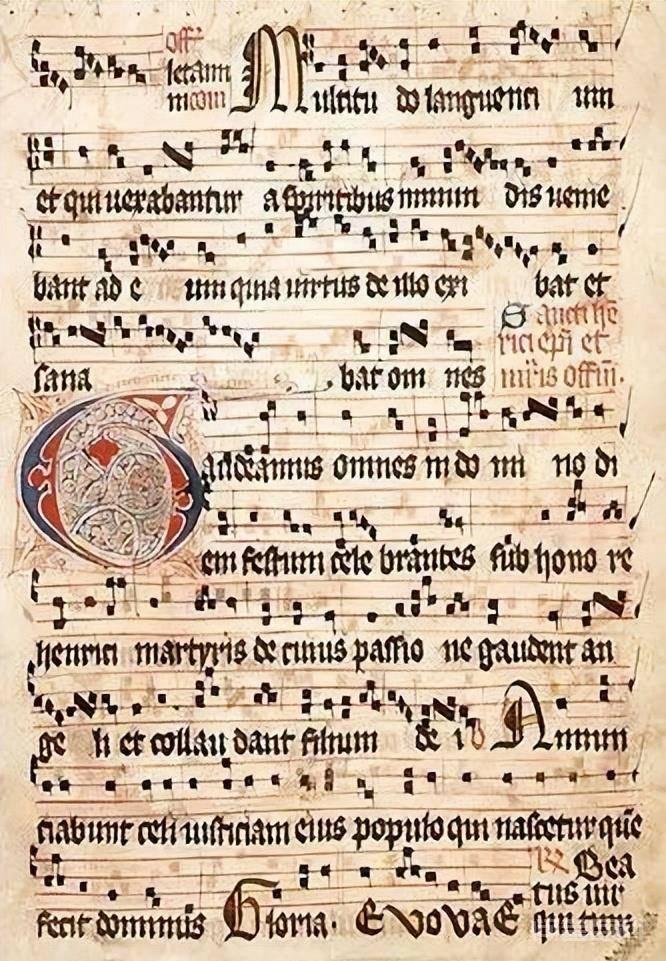 Off
letami
ni com
Multitu do languenti um
et qui uexabantur a spiritibus inmun dis uenie
bant ad e um quia uirtus de illo exi bat et
sana bat om nes
Sancti he
rici epi et
mris offm.
Gaudeamus omnes in do mi no di
em festum cele brantes sub hono re
henrici martyris de cuius passio ne gaudent an
ge li et collau dant filium de i V Annun
ciabunt celi iusticiam eius populo qui nascetur que
fecit dominus Gloria. EvovaE
R Bea
tus uir
qui tim